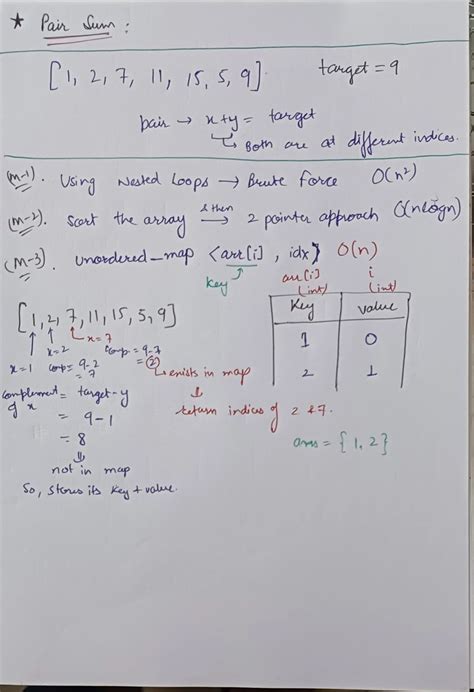 * Pair Sum :
[1, 2, 7, 11, 15, 5, 9]. target = 9
pair → x+y = target
↳ Both are at different indices.
(M-1). Using Nested Loops → Brute Force O(n²)
(M-2). Sort the array & then → 2 pointer approach O(nlogn)
(M-3). unordered_map <arr[i], idx> O(n)
key
arr[i] (int) i (int)
Key value
1 0
2 1
[1, 2, 7, 11, 15, 5, 9]
x=1 x=2 x=7
comp = 9-2 = 7
comp = 9-7 = 2
↳ exists in map
↓
return indices of 2 & 7.
ans = {1, 2}
complement of x = target-y
= 9-1
= 8
⇓
not in map
So, stores its key + value.